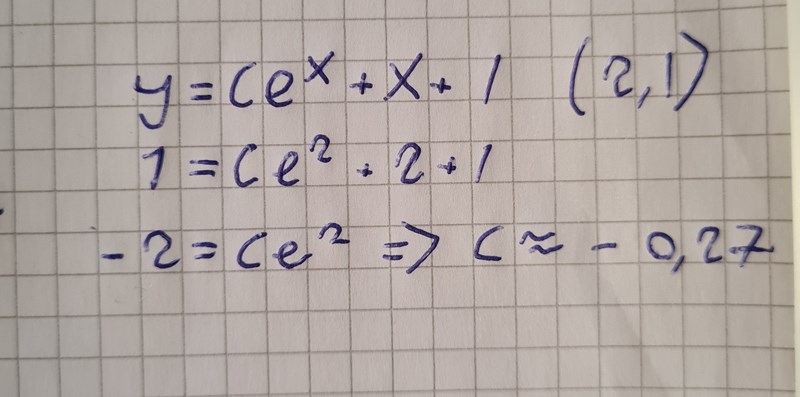 y = Ce^x + x + 1 (2,1)
1 = Ce^2 + 2 + 1
-2 = Ce^2 => C ≈ -0,27